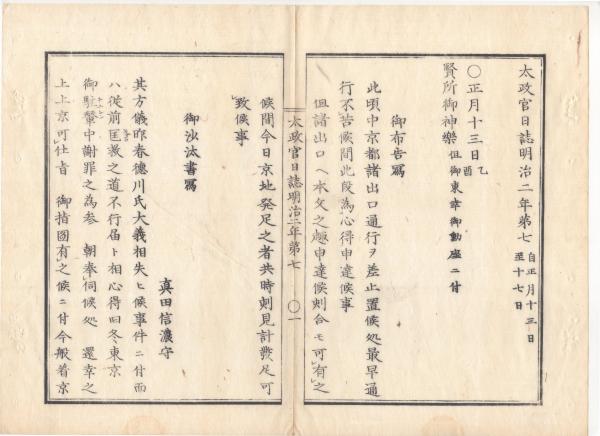 太政官日誌明治二年第七 自正月十三日 至十七日
○正月十三日 乙酉
賢所御神樂 但御東幸御動座ニ付
御布告冩
此頃中京都諸出口通行ヲ差止置候処最早通
行不苦候間此段為心得申達候事
但諸出口ヘ本文之趣申達候刻合モ可有之
太政官日誌明治二年第七 ○一
候間今日京地発足之者共時刻見計発足可
致候事
御沙汰書冩
真田信濃守
其方儀昨春徳川氏大義相失ヒ候事件ニ付而
ハ従前匡救之道不行届ト相心得旧冬東京
御駐輦中謝罪之為参 朝奉伺候処 還幸之
上上京可仕旨 御指図有之候ニ付今般着京